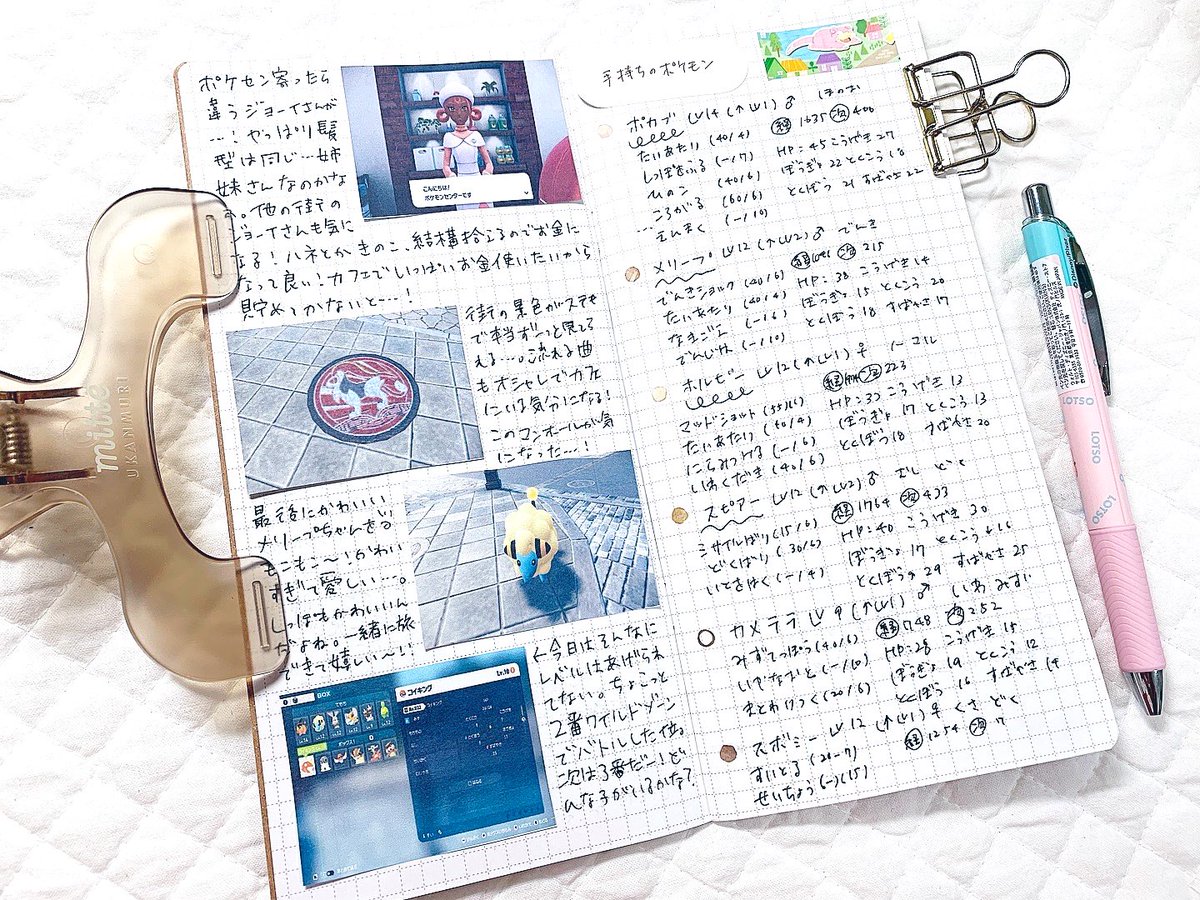 ポケセン寄ったら
違うジョーイさんが
…！やっぱり髪
型は同じ…姉
妹さんなのかな
ぁ。他の街の
ジョーイさんも気に
なる！ハネとかきのこ、結構拾えるのでお金に
なって良い！カフェでいっぱいお金使いたいから
貯めとかないと…！
こんにちは！
ポケモンセンターです
街の景色がステキ
で本当ずーっと見てら
れる…。流れる曲
もオシャレでカフェ
にいる気分になる！
このマンホールが気
になった…！
最後にかわいい
メリープちゃんを！
もこもこ〜！かわい
すぎて愛しい…。
しっぽもかわいいん
だよね。一緒に旅
できて嬉しい〜！！
←今日はそんなに
レベルはあげられ
てない。ちょこっと
2番ワイルドゾーン
でバトルした位。
次は3番だー！ど
んな子がいるかな？
BOX
てもち
ボックス1
コイキング
Lv.10
手持ちのポケモン
ポカブ Lv14 (↑Lv1) ♂ ほのお
たいあたり (40/4) 経1635 次406
しっぽをふる (-/7) HP:45 こうげき 27
ひのこ (40/6) ぼうぎょ 22 とくこう 18
ころがる (60/6) とくぼう 21 すばやさ 22
えんまく (-/10)
メリープ Lv12 (↑Lv2) ♂ でんき
でんきショック (40/6) 215
たいあたり (40/4) HP:38 こうげき 14
なきごえ (-/6) ぼうぎょ 15 とくこう 20
でんじは (-/10) とくぼう 18 すばやさ 17
ホルビー Lv12 (↑Lv1) ♀ ノーマル
マッドショット (55/6) 223
たいあたり (40/4) HP:33 こうげき 13
にらみつける (-/6) ぼうぎょ 17 とくこう 13
いわくだき (40/6) とくぼう 18 すばやさ 20
スピアー Lv12 (↑Lv2) ♂ むし どく
ミサイルばり (15/6) 経1764 次433
どくばり (30/6) HP:40 こうげき 30
いとをはく (-/4) ぼうぎょ 17 とくこう 16
とくぼう 29 すばやさ 25
カメテテ Lv9 (↑Lv1) ♂ いわ みず
みずでっぽう (40/6) 経748 次252
いやなおと (-/10) HP:28 こうげき 15
まとわりつく (20/6) ぼうぎょ 19 とくこう 12
とくぼう 16 すばやさ 14
スボミー Lv12 (↑Lv1) ♀ くさ どく
すいとる (20-7) 経1254 次7
せいちょう (-)(15)
mitite
UKANMURI
LOTSO
LOTSO
LOTSO